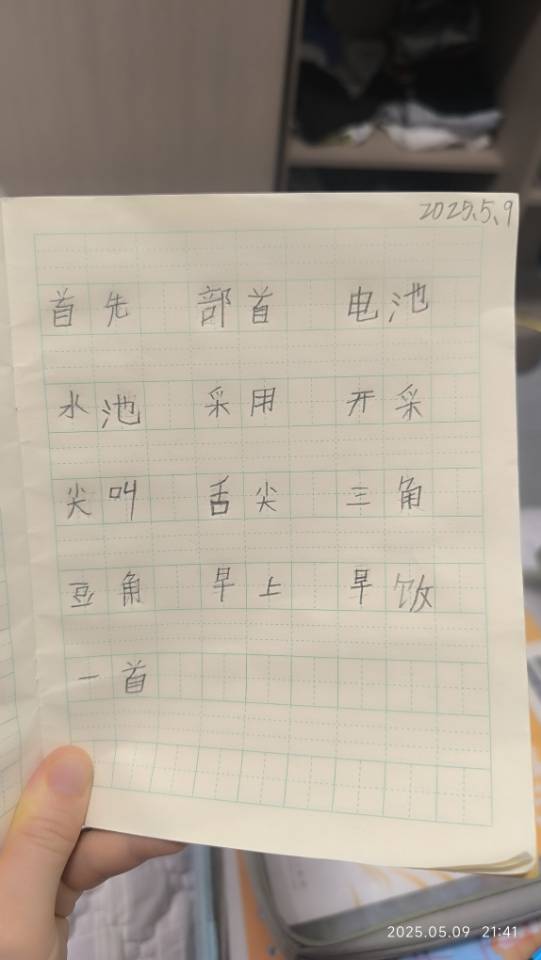 2025.5.9
首先 部首 电池
水池 采用 开采
尖叫 舌尖 三角
豆角 早上 早饭
一首
2025.05.09 21:41